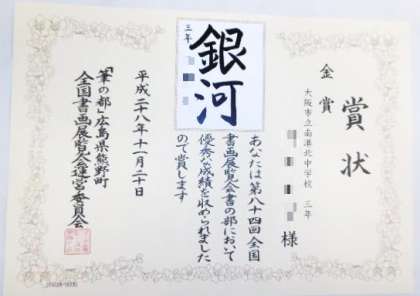 賞状
金賞
大阪市立南港北中学校 三年
様
三年
銀河
あなたは第八十四回全国
書画展覧会書の部において
優秀な成績を収められました
ので賞します
平成二十八年十一月二十日
「筆の都」広島県熊野町
全国書画展覧会運営委員会